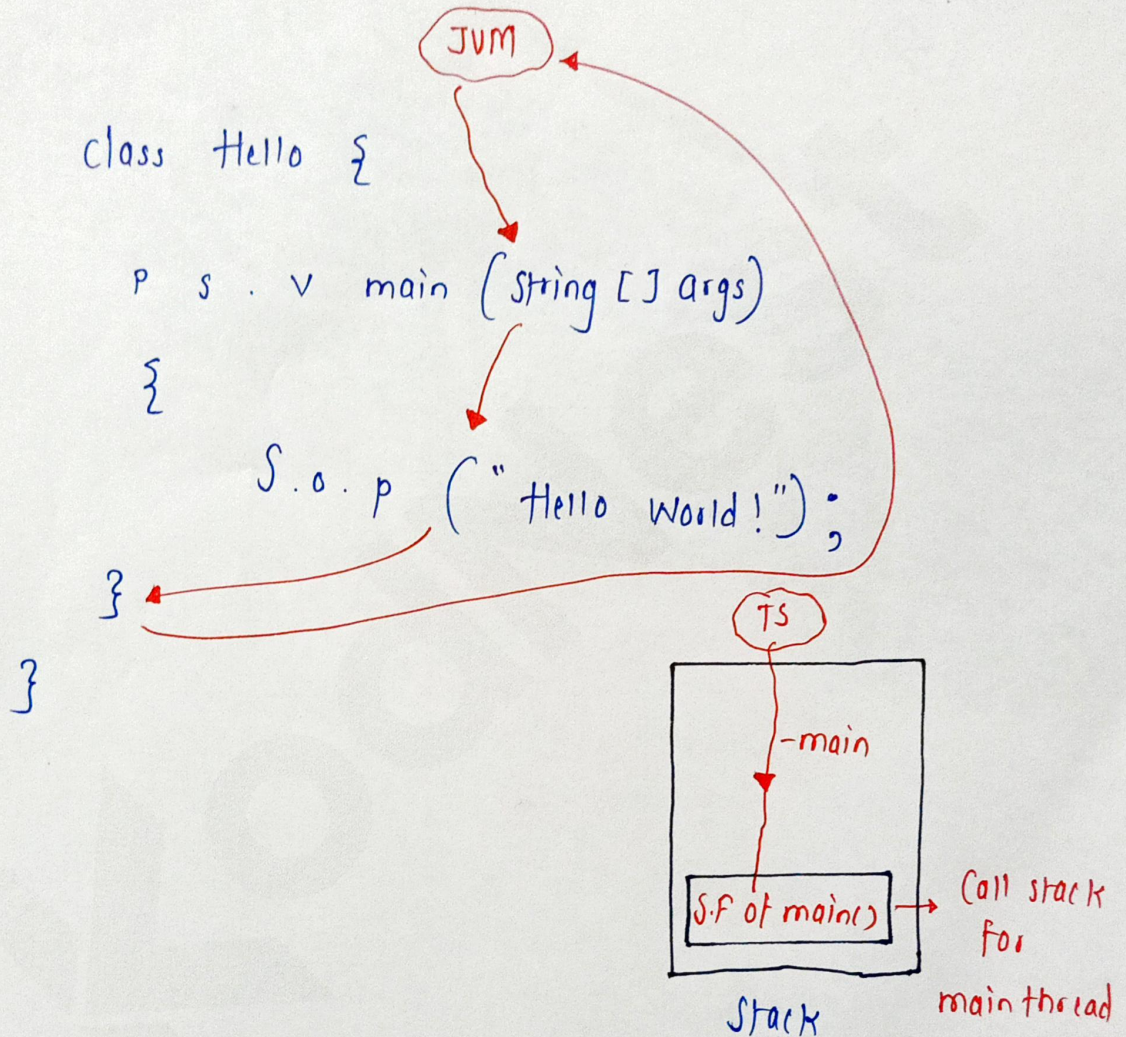 JVM
class Hello {
p s . v main (string [] args)
{
S.o.p ("Hello World!");
}
}
TS
-main
S.F of main()
Call stack
for
main thread
Stack